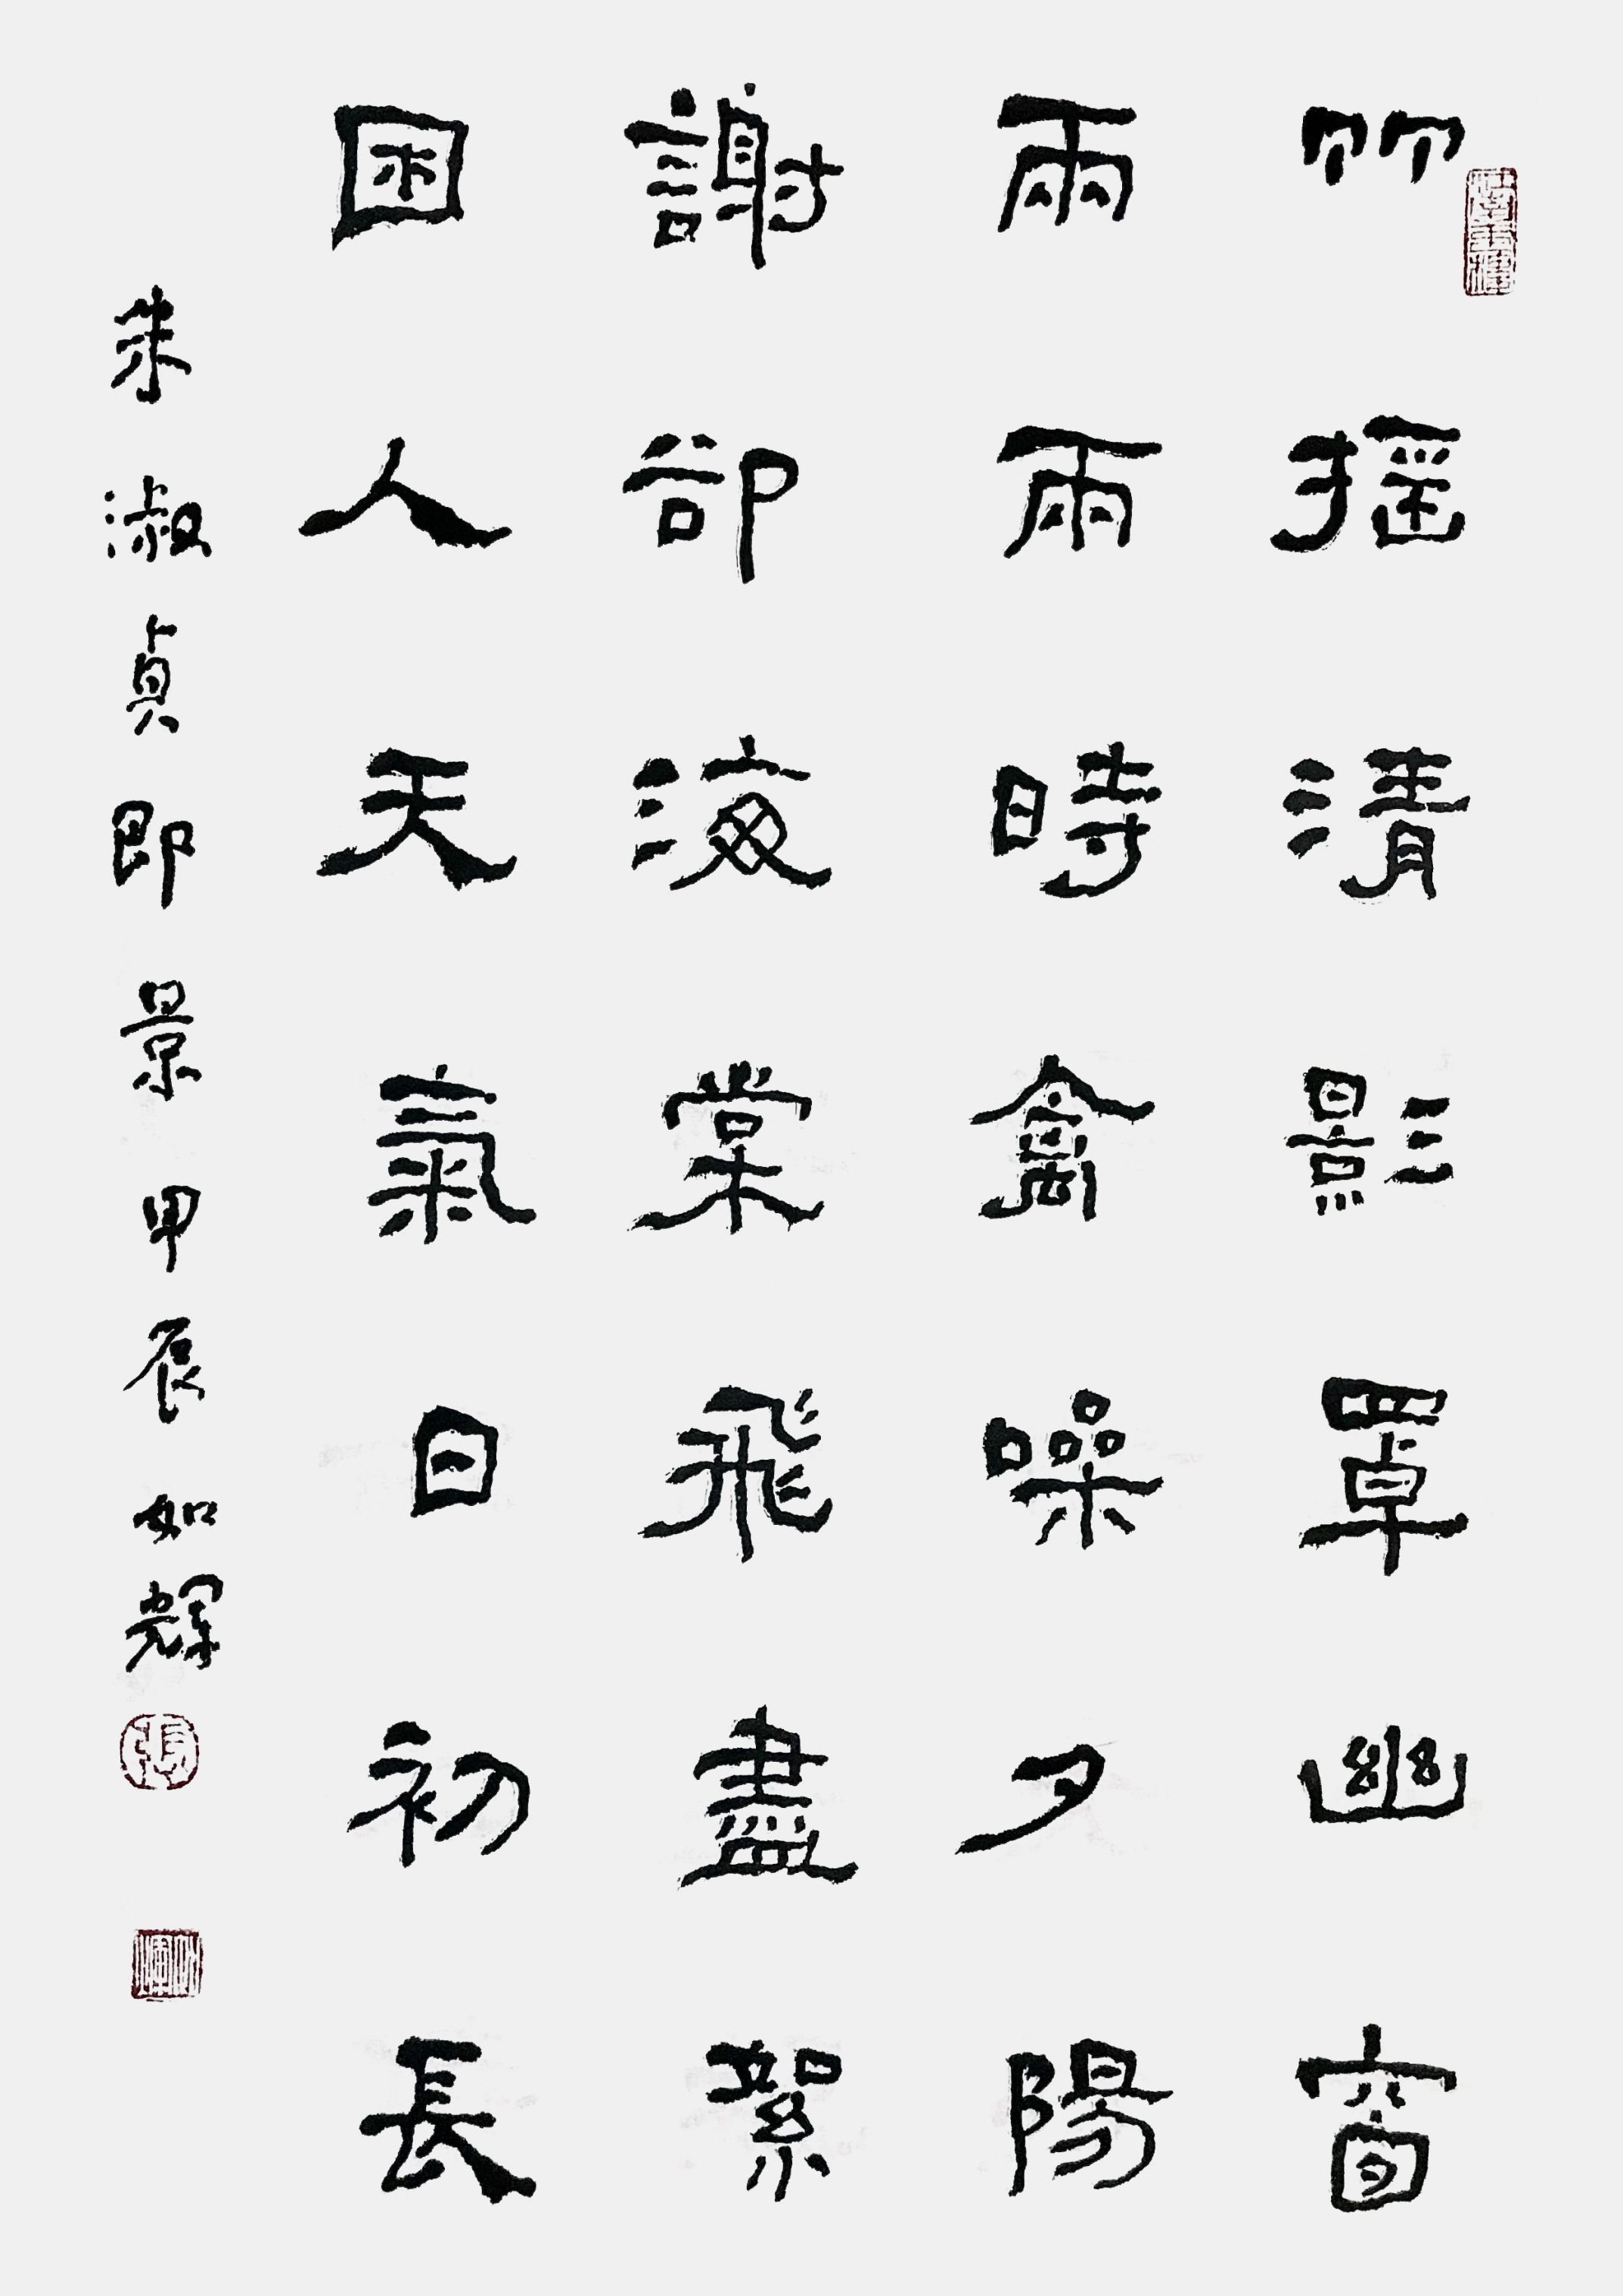 竹搖清影罩幽窗
兩兩時禽噪夕陽
謝卻海棠飛盡絮
困人天氣日初長
朱淑貞即景甲辰如輝
張